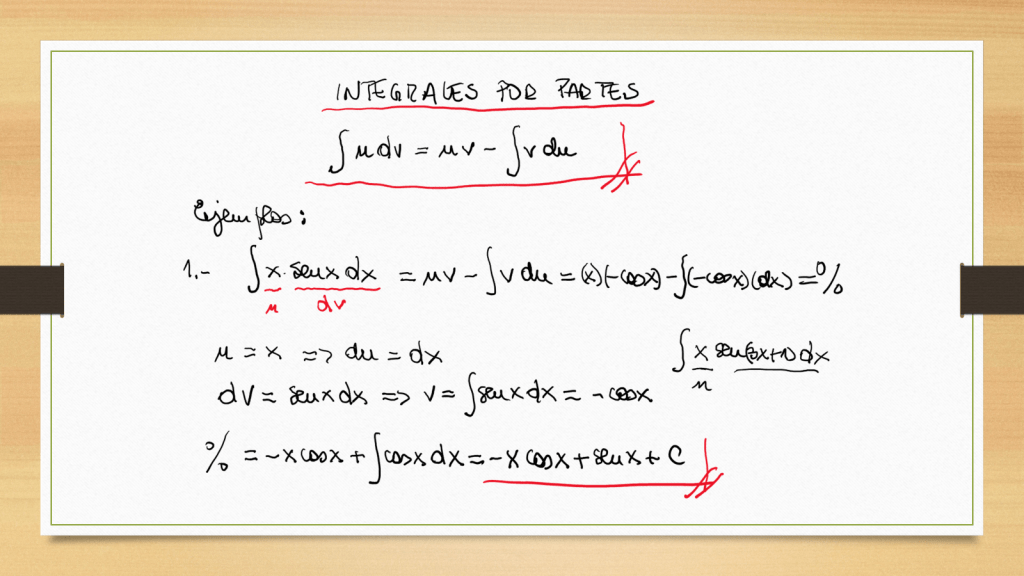 INTEGRALES POR PARTES
∫ u dv = uv - ∫ v du
Ejemplos:
1.- ∫ x · senx dx = uv - ∫ v du = (x)(-cosx) - ∫(-cosx)(dx) = %
u dv
u = x => du = dx
∫ x sen(3x+1) dx
u
dv = senx dx => v = ∫ senx dx = -cosx
% = -x cosx + ∫ cosx dx = -x cosx + senx + C